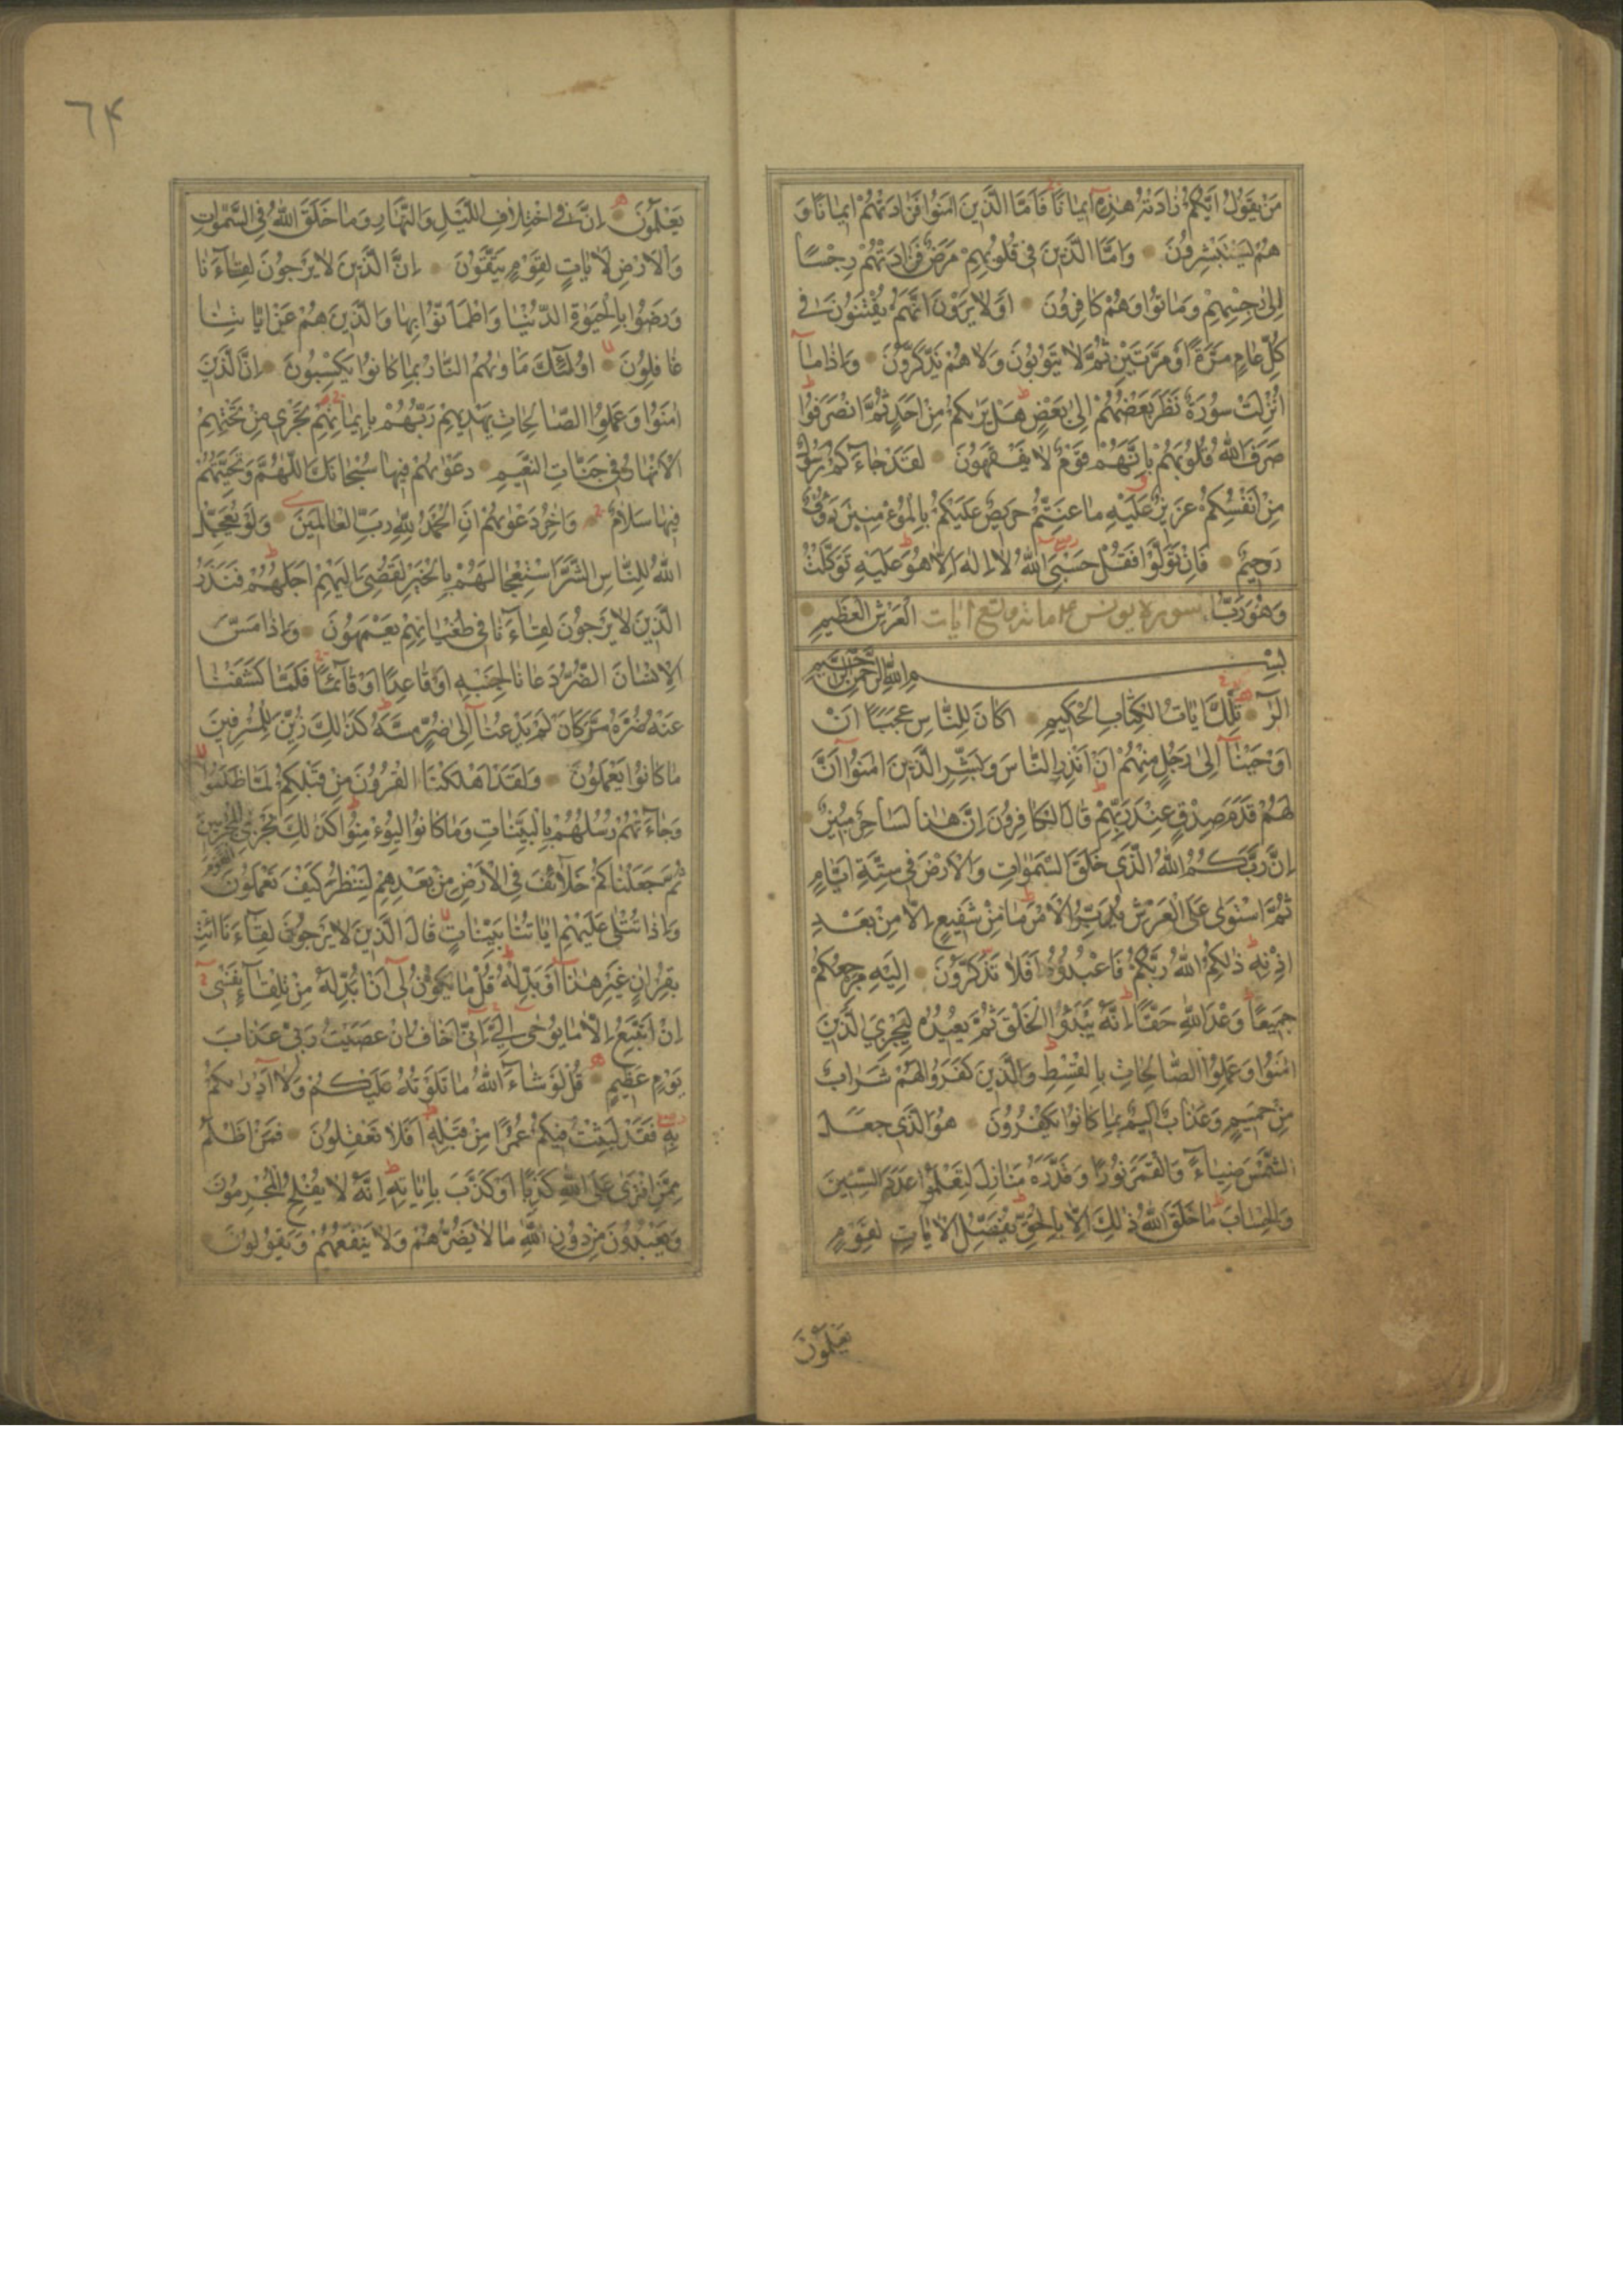 مَنْ يَقُولُ اَيُّكُمْ زَادَتْهُ هٰذِهٓ اٖيمَانًا فَاَمَّا الَّذٖينَ اٰمَنُوا فَزَادَتْهُمْ اٖيمَانًا وَ
هُمْ يَسْتَبْشِرُونَ وَاَمَّا الَّذٖينَ فٖى قُلُوبِهِمْ مَرَضٌ فَزَادَتْهُمْ رِجْسًا
اِلٰى رِجْسِهِمْ وَمَاتُوا وَهُمْ كَافِرُونَ اَوَلَا يَرَوْنَ اَنَّهُمْ يُفْتَنُونَ فٖى
كُلِّ عَامٍ مَرَّةً اَوْ مَرَّتَيْنِ ثُمَّ لَا يَتُوبُونَ وَلَا هُمْ يَذَّكَّرُونَ وَاِذَا مَآ
اُنْزِلَتْ سُورَةٌ نَظَرَ بَعْضُهُمْ اِلٰى بَعْضٍ هَلْ يَرٰىكُمْ مِنْ اَحَدٍ ثُمَّ انْصَرَفُوا
صَرَفَ اللّٰهُ قُلُوبَهُمْ بِاَنَّهُمْ قَوْمٌ لَا يَفْقَهُونَ لَقَدْ جَآءَكُمْ رَسُولٌ
مِنْ اَنْفُسِكُمْ عَزٖيزٌ عَلَيْهِ مَا عَنِتُّمْ حَرٖيصٌ عَلَيْكُمْ بِالْمُؤْمِنٖينَ رَؤُفٌ
رَحٖيمٌ فَاِنْ تَوَلَّوْا فَقُلْ حَسْبِىَ اللّٰهُ لَآ اِلٰهَ اِلَّا هُوَ عَلَيْهِ تَوَكَّلْتُ
وَهُوَ رَبُّ سورة يونس مائة وتسع ايات الْعَرْشِ الْعَظٖيمِ
بِسْمِ اللّٰهِ الرَّحْمٰنِ الرَّحٖيمِ
الٓرٰ تِلْكَ اٰيَاتُ الْكِتَابِ الْحَكٖيمِ اَكَانَ لِلنَّاسِ عَجَبًا اَنْ
اَوْحَيْنَآ اِلٰى رَجُلٍ مِنْهُمْ اَنْ اَنْذِرِ النَّاسَ وَبَشِّرِ الَّذٖينَ اٰمَنُوٓا اَنَّ
لَهُمْ قَدَمَ صِدْقٍ عِنْدَ رَبِّهِمْ قَالَ الْكَافِرُونَ اِنَّ هٰذَا لَسَاحِرٌ مُبٖينٌ
اِنَّ رَبَّكُمُ اللّٰهُ الَّذٖى خَلَقَ السَّمٰوَاتِ وَالْاَرْضَ فٖى سِتَّةِ اَيَّامٍ
ثُمَّ اسْتَوٰى عَلَى الْعَرْشِ يُدَبِّرُ الْاَمْرَ مَا مِنْ شَفٖيعٍ اِلَّا مِنْ بَعْدِ
اِذْنِهٖ ذٰلِكُمُ اللّٰهُ رَبُّكُمْ فَاعْبُدُوهُ اَفَلَا تَذَكَّرُونَ اِلَيْهِ مَرْجِعُكُمْ
جَمٖيعًا وَعْدَ اللّٰهِ حَقًّا اِنَّهُ يَبْدَؤُا الْخَلْقَ ثُمَّ يُعٖيدُهُ لِيَجْزِىَ الَّذٖينَ
اٰمَنُوا وَعَمِلُوا الصَّالِحَاتِ بِالْقِسْطِ وَالَّذٖينَ كَفَرُوا لَهُمْ شَرَابٌ
مِنْ حَمٖيمٍ وَعَذَابٌ اَلٖيمٌ بِمَا كَانُوا يَكْفُرُونَ هُوَ الَّذٖى جَعَلَ
الشَّمْسَ ضِيَآءً وَالْقَمَرَ نُورًا وَقَدَّرَهُ مَنَازِلَ لِتَعْلَمُوا عَدَدَ السِّنٖينَ
وَالْحِسَابَ مَا خَلَقَ اللّٰهُ ذٰلِكَ اِلَّا بِالْحَقِّ يُفَصِّلُ الْاٰيَاتِ لِقَوْمٍ
يَعْلَمُونَ
٦٤
يَعْلَمُونَ اِنَّ فِى اخْتِلَافِ اللَّيْلِ وَالنَّهَارِ وَمَا خَلَقَ اللّٰهُ فِى السَّمٰوَاتِ
وَالْاَرْضِ لَاٰيَاتٍ لِقَوْمٍ يَتَّقُونَ اِنَّ الَّذٖينَ لَا يَرْجُونَ لِقَآءَنَا
وَرَضُوا بِالْحَيٰوةِ الدُّنْيَا وَاطْمَاَنُّوا بِهَا وَالَّذٖينَ هُمْ عَنْ اٰيَاتِنَا
غَافِلُونَ اُولٰٓئِكَ مَاْوٰىهُمُ النَّارُ بِمَا كَانُوا يَكْسِبُونَ اِنَّ الَّذٖينَ
اٰمَنُوا وَعَمِلُوا الصَّالِحَاتِ يَهْدٖيهِمْ رَبُّهُمْ بِاٖيمَانِهِمْ تَجْرٖى مِنْ تَحْتِهِمُ
الْاَنْهَارُ فٖى جَنَّاتِ النَّعٖيمِ دَعْوٰىهُمْ فٖيهَا سُبْحَانَكَ اللّٰهُمَّ وَتَحِيَّتُهُمْ
فٖيهَا سَلَامٌ وَاٰخِرُ دَعْوٰىهُمْ اَنِ الْحَمْدُ لِلّٰهِ رَبِّ الْعَالَمٖينَ وَلَوْ يُعَجِّلُ
اللّٰهُ لِلنَّاسِ الشَّرَّ اسْتِعْجَالَهُمْ بِالْخَيْرِ لَقُضِىَ اِلَيْهِمْ اَجَلُهُمْ فَنَذَرُ
الَّذٖينَ لَا يَرْجُونَ لِقَآءَنَا فٖى طُغْيَانِهِمْ يَعْمَهُونَ وَاِذَا مَسَّ
الْاِنْسَانَ الضُّرُّ دَعَانَا لِجَنْبِهٖ اَوْ قَاعِدًا اَوْ قَآئِمًا فَلَمَّا كَشَفْنَا
عَنْهُ ضُرَّهُ مَرَّ كَاَنْ لَمْ يَدْعُنَآ اِلٰى ضُرٍّ مَسَّهُ كَذٰلِكَ زُيِّنَ لِلْمُسْرِفٖينَ
مَا كَانُوا يَعْمَلُونَ وَلَقَدْ اَهْلَكْنَا الْقُرُونَ مِنْ قَبْلِكُمْ لَمَّا ظَلَمُوا
وَجَآءَتْهُمْ رُسُلُهُمْ بِالْبَيِّنَاتِ وَمَا كَانُوا لِيُؤْمِنُوا كَذٰلِكَ نَجْزِى الْقَوْمَ الْمُجْرِمٖينَ
ثُمَّ جَعَلْنَاكُمْ خَلَآئِفَ فِى الْاَرْضِ مِنْ بَعْدِهِمْ لِنَنْظُرَ كَيْفَ تَعْمَلُونَ
وَاِذَا تُتْلٰى عَلَيْهِمْ اٰيَاتُنَا بَيِّنَاتٍ قَالَ الَّذٖينَ لَا يَرْجُونَ لِقَآءَنَا ائْتِ
بِقُرْاٰنٍ غَيْرِ هٰذَآ اَوْ بَدِّلْهُ قُلْ مَا يَكُونُ لٖٓى اَنْ اُبَدِّلَهُ مِنْ تِلْقَآئِ نَفْسٖى
اِنْ اَتَّبِعُ اِلَّا مَا يُوحٰٓى اِلَىَّ اِنّٖٓى اَخَافُ اِنْ عَصَيْتُ رَبّٖى عَذَابَ
يَوْمٍ عَظٖيمٍ قُلْ لَوْ شَآءَ اللّٰهُ مَا تَلَوْتُهُ عَلَيْكُمْ وَلَآ اَدْرٰىكُمْ
بِهٖ فَقَدْ لَبِثْتُ فٖيكُمْ عُمُرًا مِنْ قَبْلِهٖ اَفَلَا تَعْقِلُونَ فَمَنْ اَظْلَمُ
مِمَّنِ افْتَرٰى عَلَى اللّٰهِ كَذِبًا اَوْ كَذَّبَ بِاٰيَاتِهٖ اِنَّهُ لَا يُفْلِحُ الْمُجْرِمُونَ
وَيَعْبُدُونَ مِنْ دُونِ اللّٰهِ مَا لَا يَضُرُّهُمْ وَلَا يَنْفَعُهُمْ وَيَقُولُونَ